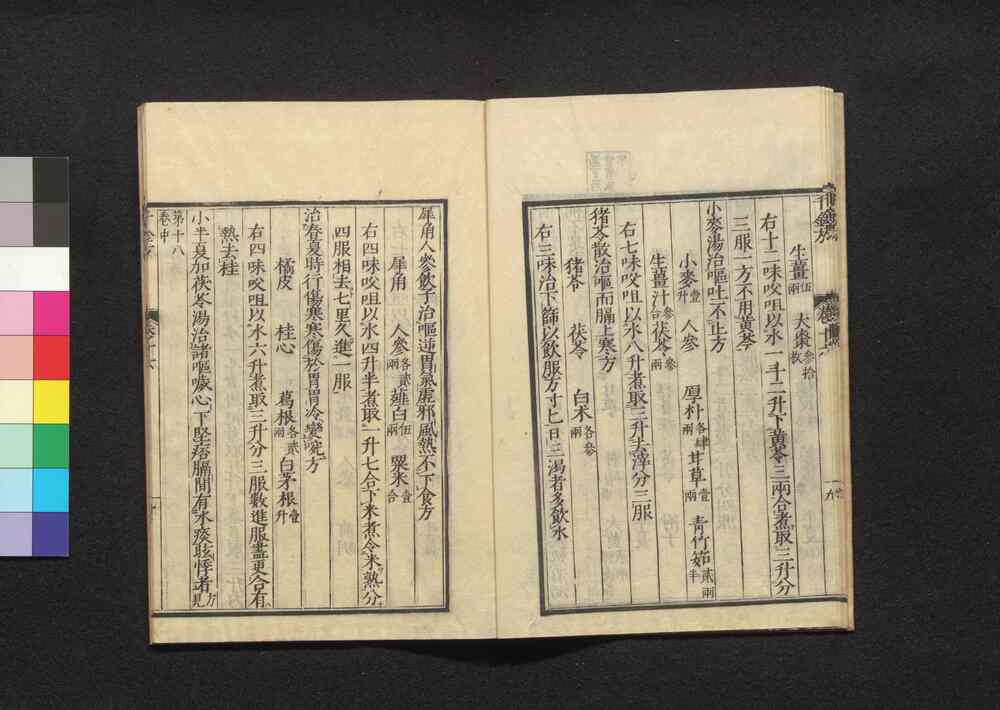 生薑伍兩 大棗參拾枚
右十二味㕮咀以水一斗二升下黄芩三兩合煮取三升分
三服一方不用黄芩
小麥湯治嘔吐不止方
小麥壹升 人參 厚朴各肆兩 甘草壹兩 青竹筎貳兩半
生薑汁參合 茯苓參兩
右七味㕮咀以水八升煮取三升去滓分三服
猪苓散治嘔而膈上寒方
猪苓 茯苓 白术各參兩
右三味治下篩以飲服方寸匕日三渴者多飲水
犀角人參飲子治嘔逆胃氣虚邪風熱不下食方
犀角 人參各貳兩 薤白伍兩 粟米壹合
右四味㕮咀以水四升半煮取一升七合下米煮令米熟分
四服相去七里久進一服
治春夏時行傷寒寒傷於胃胃冷變啘方
橘皮 桂心 葛根各貳兩 白茅根壹升
右四味㕮咀以水六升煮取三升分三服數進服盡更合有
熱去桂
小半夏加茯苓湯治諸嘔噦心下堅痞膈間有水痰眩悸者方見
第十八
卷中